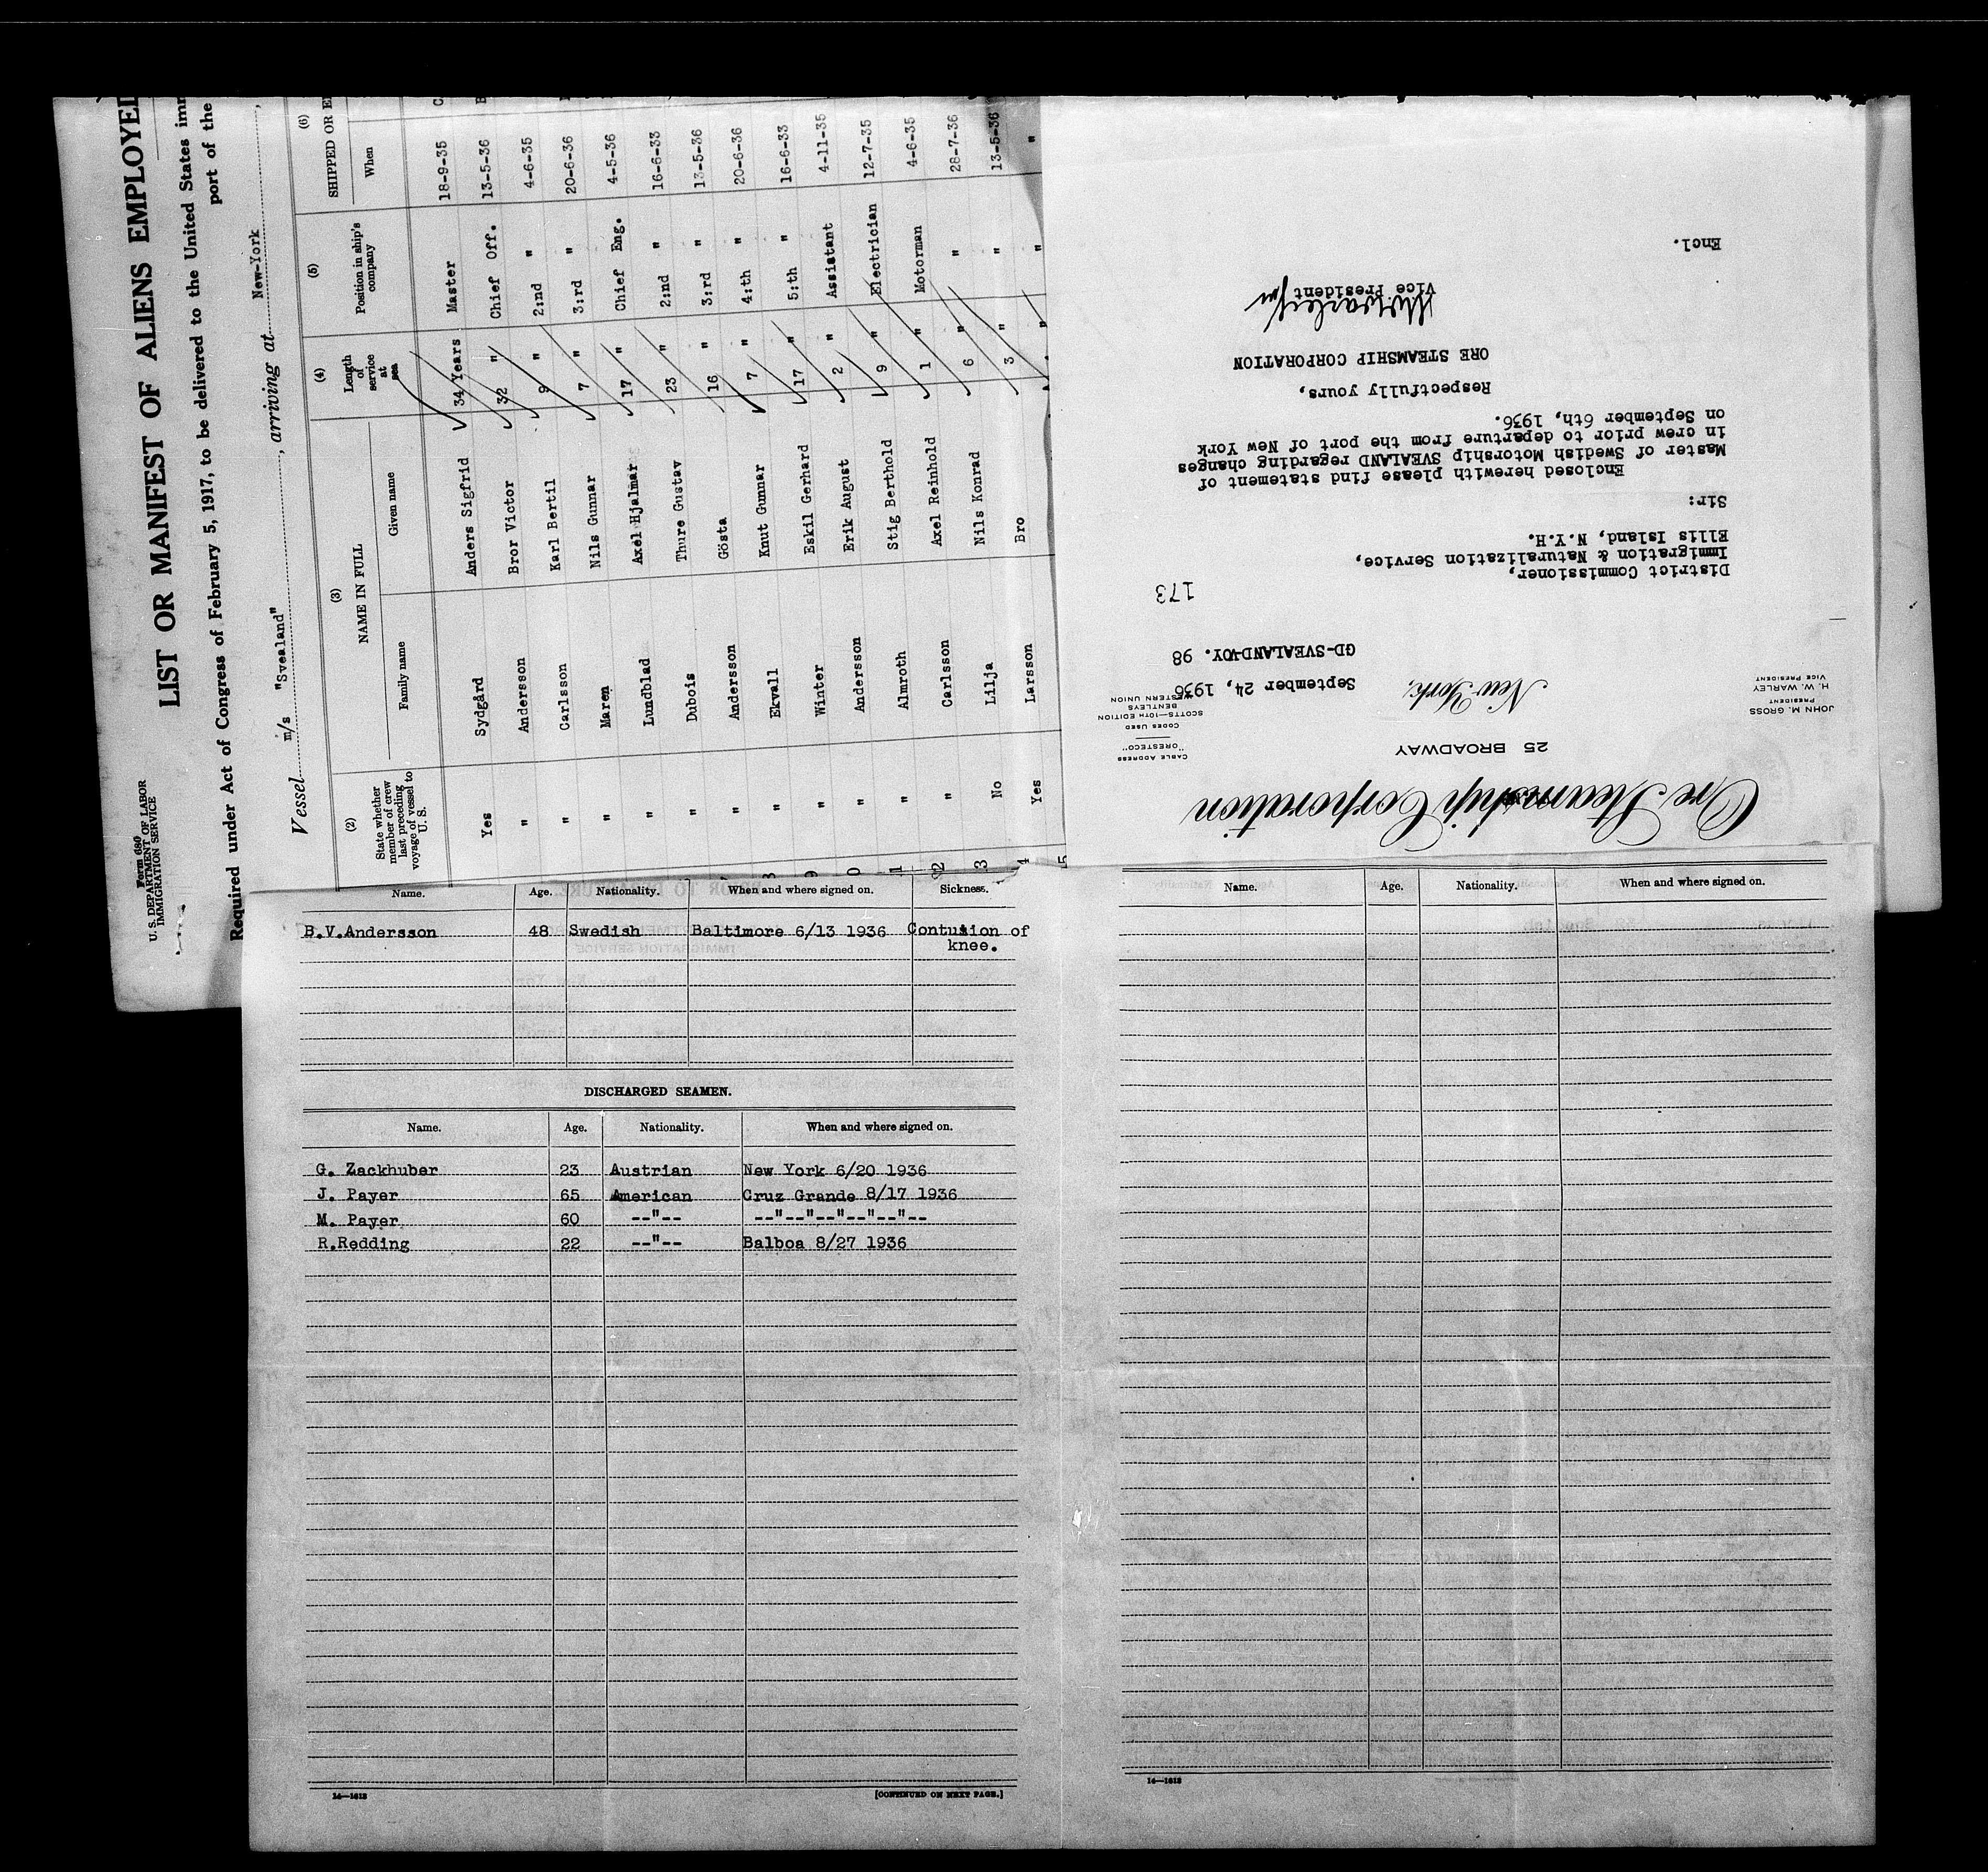 Form 680
U. S. DEPARTMENT OF LABOR
IMMIGRATION SERVICE
LIST OR MANIFEST OF ALIENS EMPLOYED
Required under Act of Congress of February 5, 1917, to be delivered to the United States
port of the
Vessel m/s "Svealand", arriving at New-York,
(2) (3) (4) (5) (6)
State whether member of crew last preceding voyage of vessel to U. S. NAME IN FULL Length of service at sea Position in ship's company SHIPPED OR
Family name Given name When
Yes Sydgård Anders Sigfrid 34 Years Master 18-9-35
" Andersson Bror Victor 32 " Chief Off. 13-5-36
" Carlsson Karl Bertil 9 " 2:nd " 4-6-35
" Maren Nils Gunnar 7 " 3:rd " 20-6-36
" Lundblad Axel Hjalmar 17 " Chief Eng. 4-5-36
" Dubois Thure Gustav 23 " 2:nd " 16-6-33
" Andersson Gösta 16 " 3:rd " 13-5-36
" Ekvall Knut Gunnar 7 " 4:th " 20-6-36
" Winter Eskil Gerhard 17 " 5:th " 16-6-33
" Andersson Erik August 2 " Assistant 4-11-35
" Almroth Stig Berthold 9 " Electrician 12-7-35
" Carlsson Axel Reinhold 1 " Motorman 4-6-35
No Lilja Nils Konrad 6 " " 28-7-36
Yes Larsson Bro 3 " " 13-5-36
Ore Steamship Corporation
25 BROADWAY
JOHN M. GROSS
PRESIDENT
H. W. WARLEY
VICE PRESIDENT
CABLE ADDRESS
"ORESTECO"
CODES USED
SCOTTS—10TH EDITION
BENTLEYS
WESTERN UNION
New York, September 24, 1936
GD-SVEALAND-VOY. 98
173
District Commissioner,
Immigration & Naturalization Service,
Ellis Island, N.Y.H.
Sir:
Enclosed herewith please find statement of
Master of Swedish Motorship SVEALAND regarding changes
in crew prior to departure from the port of New York
on September 6th, 1936.
Respectfully yours,
ORE STEAMSHIP CORPORATION
Vice President
Encl.
Name. Age. Nationality. When and where signed on. Sickness.
B.V.Andersson 48 Swedish Baltimore 6/13 1936 Contusion of
knee.
DISCHARGED SEAMEN.
Name. Age. Nationality. When and where signed on.
G. Zackhuber 23 Austrian New York 6/20 1936
J. Payer 65 American Cruz Grande 8/17 1936
M. Payer 60 --"-- --"--"--"--"--"--
R.Redding 22 --"-- Balboa 8/27 1936
14—1613
[CONTINUED ON NEXT PAGE.]
Name. Age. Nationality. When and where signed on.
14—1613